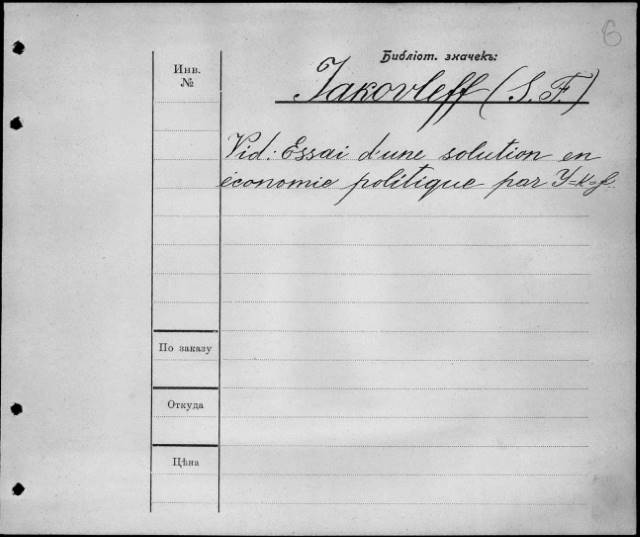 6
Библіот. значекъ:
Инв.
№
Jakovleff (S. F.)
Vid: Essai d'une solution en
économie politique par Y=k=f.
По заказу
Откуда
Цѣна